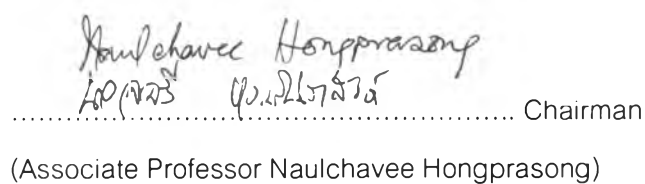 Naulchavee Hongprasong
........................................................ Chairman
(Associate Professor Naulchavee Hongprasong)